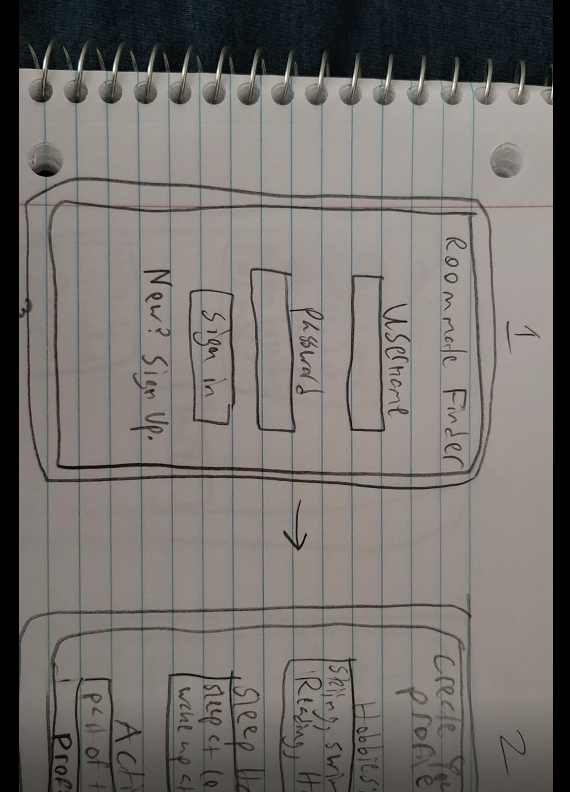 1
Roommate Finder
Username
password
Sign in
New? Sign Up.
2
Create You
profile
Hobbies:
swim
Reading, H
Sleep Ha
Sleep at
wake up at
Acti
part of
Prof